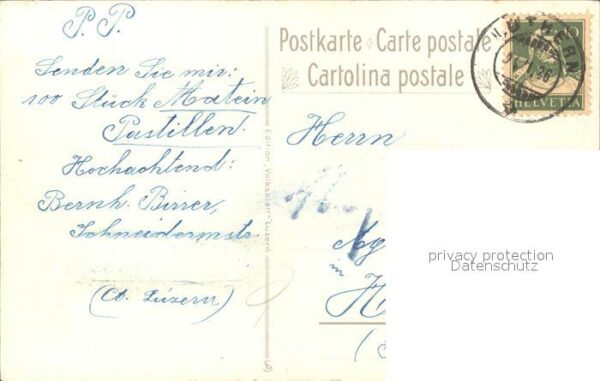 P. P.
Senden Sie mir:
100 Stück Matein
Pastillen.
Hochachtend:
Bernh. Birrer,
Schneidermstr.
(Ct. Luzern)
Edition Volksdank Luzern
Postkarte Carte postale
Cartolina postale
HELVETIA
Herrn
in
privacy protection
Datenschutz